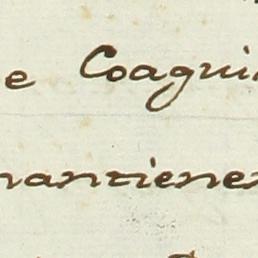 e Coagui
mantiene